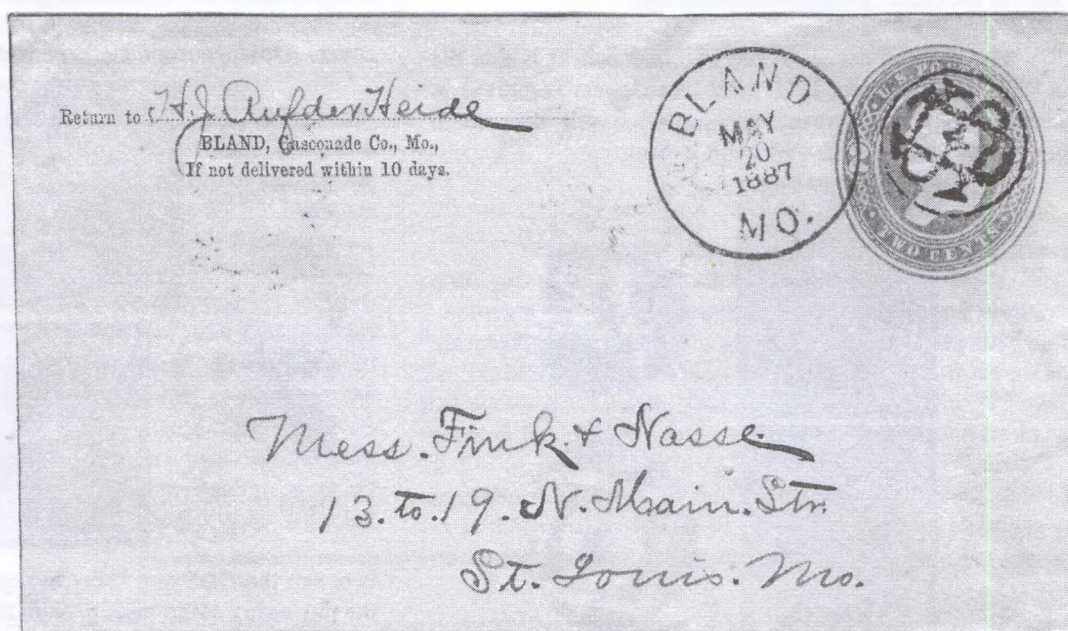 Return to H.J. Aufder Heide
BLAND, Gasconade Co., Mo.,
If not delivered within 10 days.
BLAND
MAY
20
1887
MO.
TWO CENTS
Mess. Fink & Nasse
13. to. 19. N. Main. Str.
St. Louis. Mo.